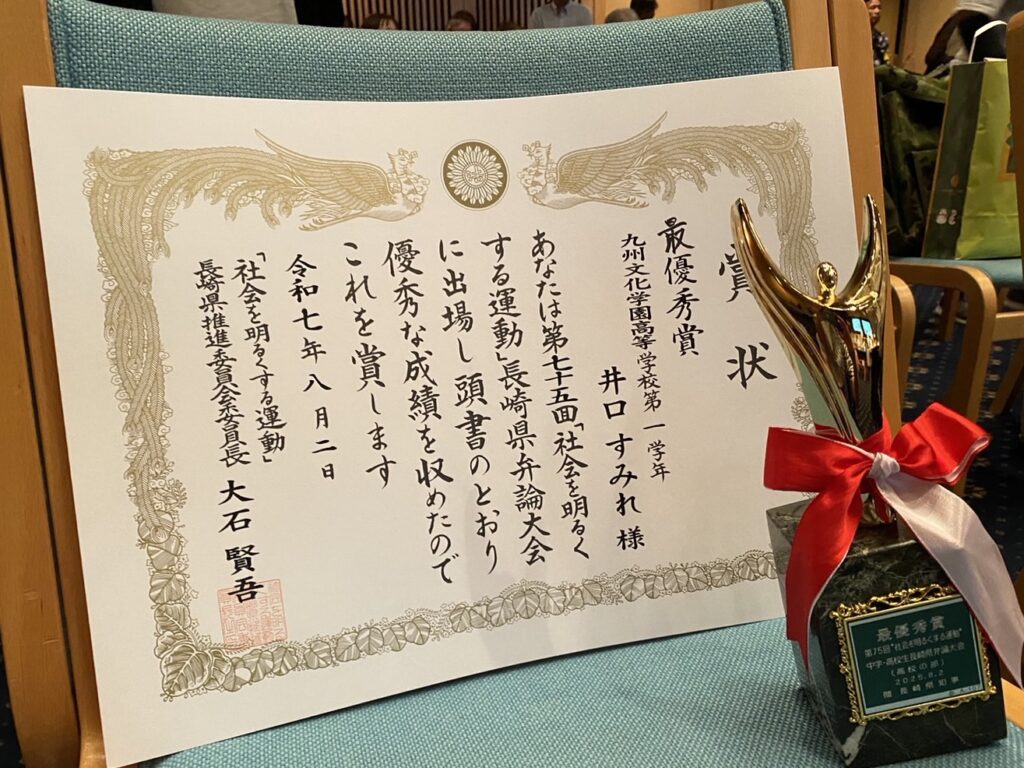 賞状
最優秀賞
九州文化学園高等学校第一学年
井口すみれ様
あなたは第七十五回「社会を明るく
する運動」長崎県弁論大会
に出場し頭書のとおり
優秀な成績を収めたので
これを賞します
令和七年八月二日
「社会を明るくする運動」
長崎県推進委員会委員長 大石賢吾
最優秀賞
第75回"社会を明るくする運動"
中学・高校生長崎県弁論大会
(高校の部)
2025.8.2
長崎県知事